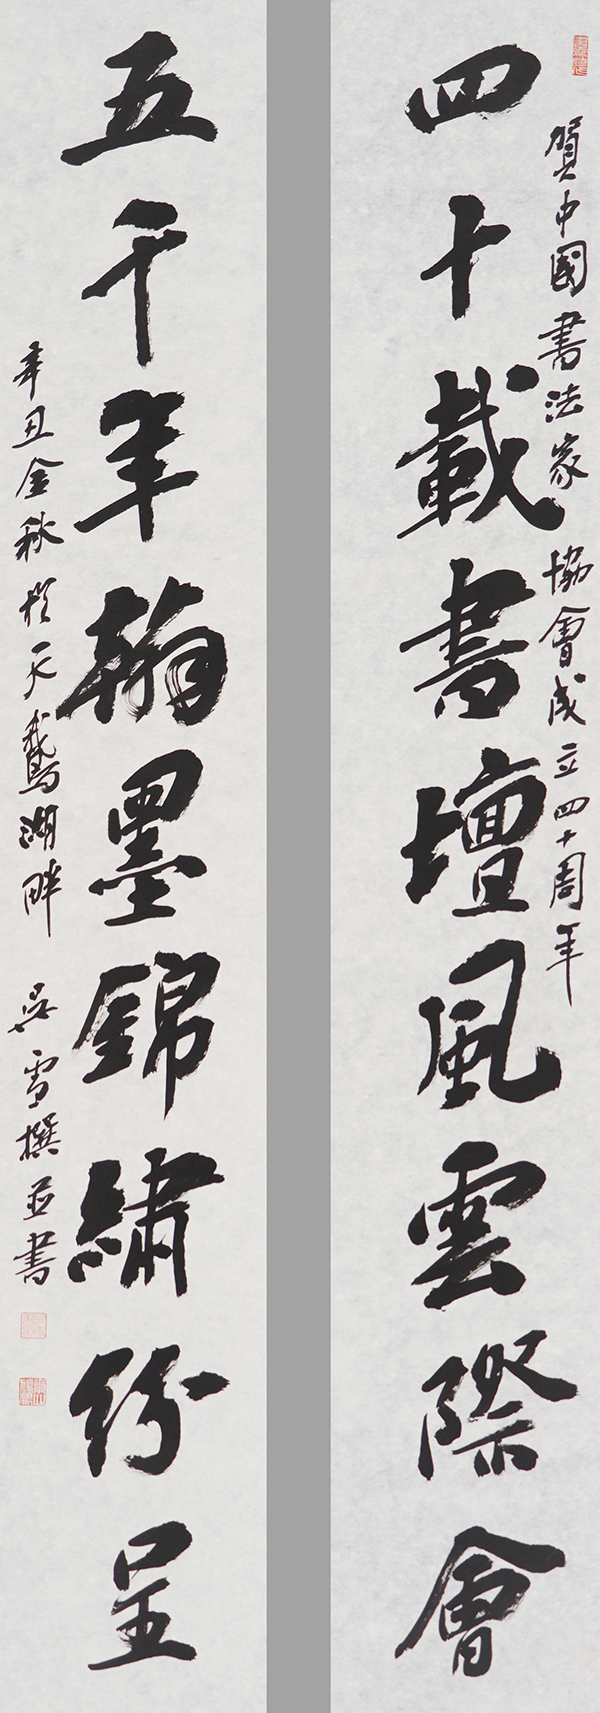 賀中國書法家協會成立四十周年
四十載書壇風雲際會
五千年翰墨錦繡紛呈
辛丑金秋於天鵝湖畔 吳雪撰並書